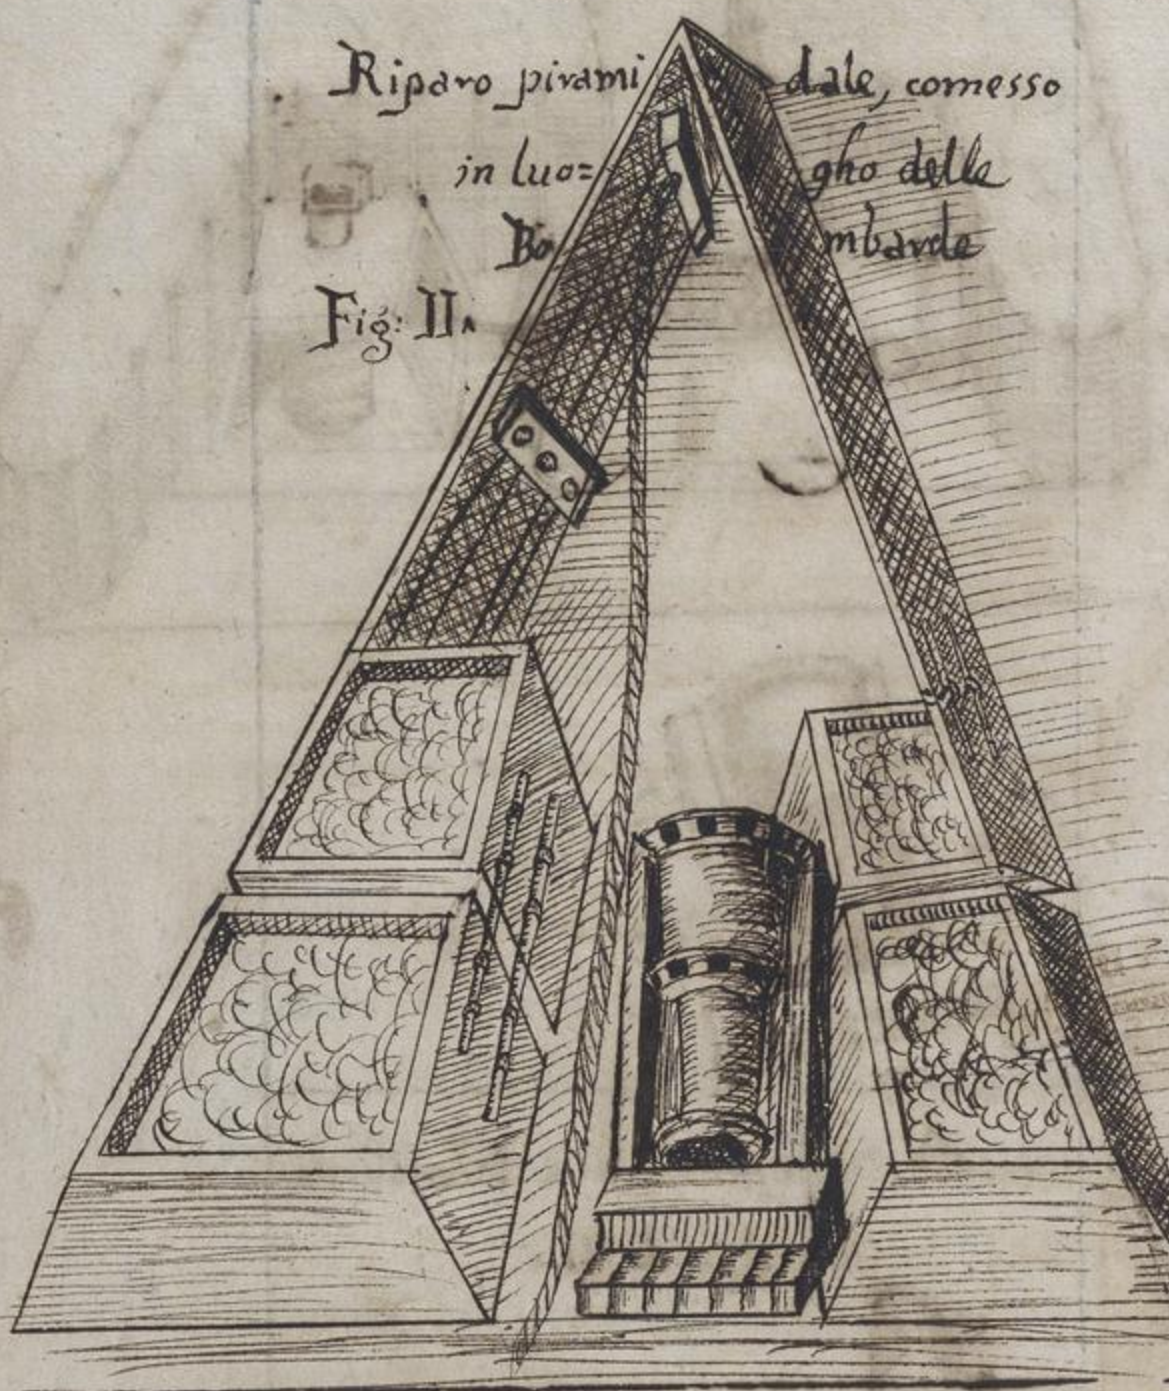 Riparo pirami dale, comesso
in luo= gho delle
Bo mbarde
Fig: II^